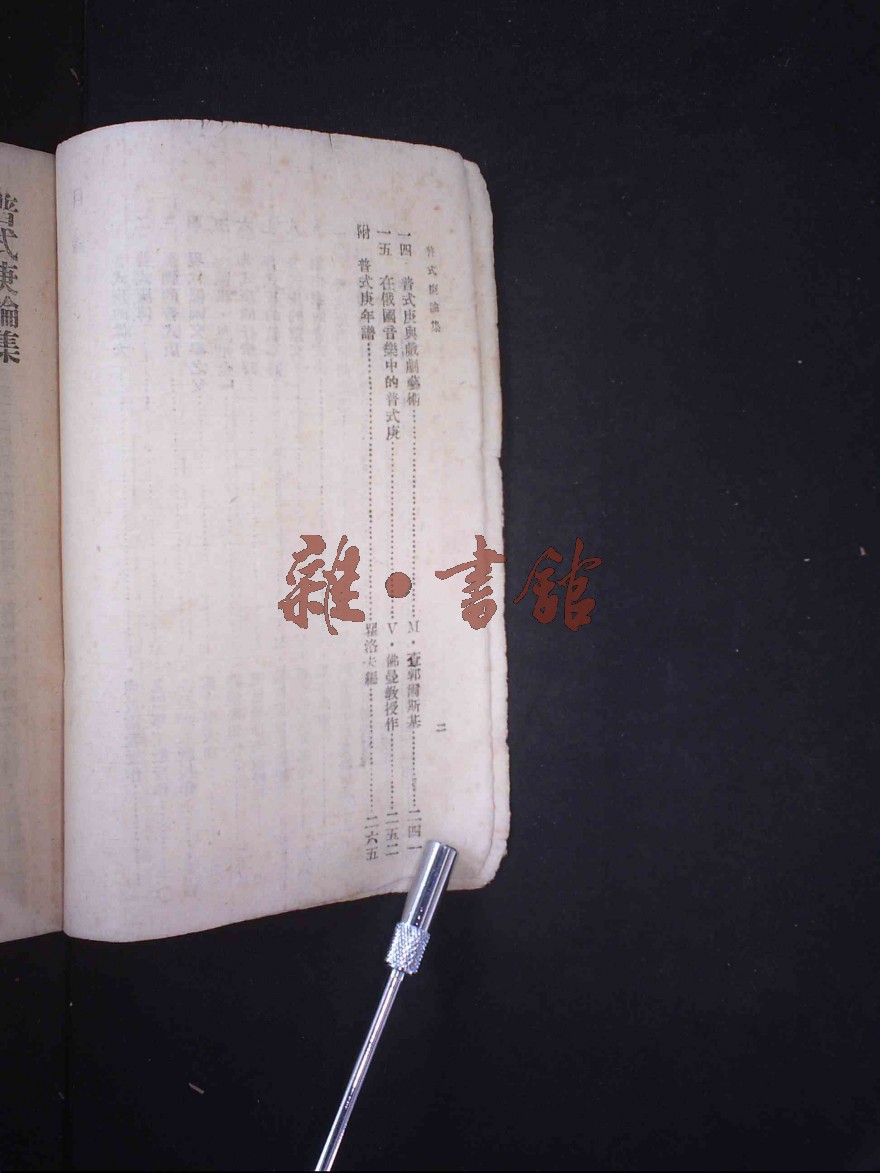 普式庚論集
二
一四 普式庚與戲劇藝術……M·查郭爾斯基……二四一
一五 在俄國音樂中的普式庚……V·佛曼教授作……二五二
附 普式庚年譜……編……二六五
普式庚論集
雜·書館